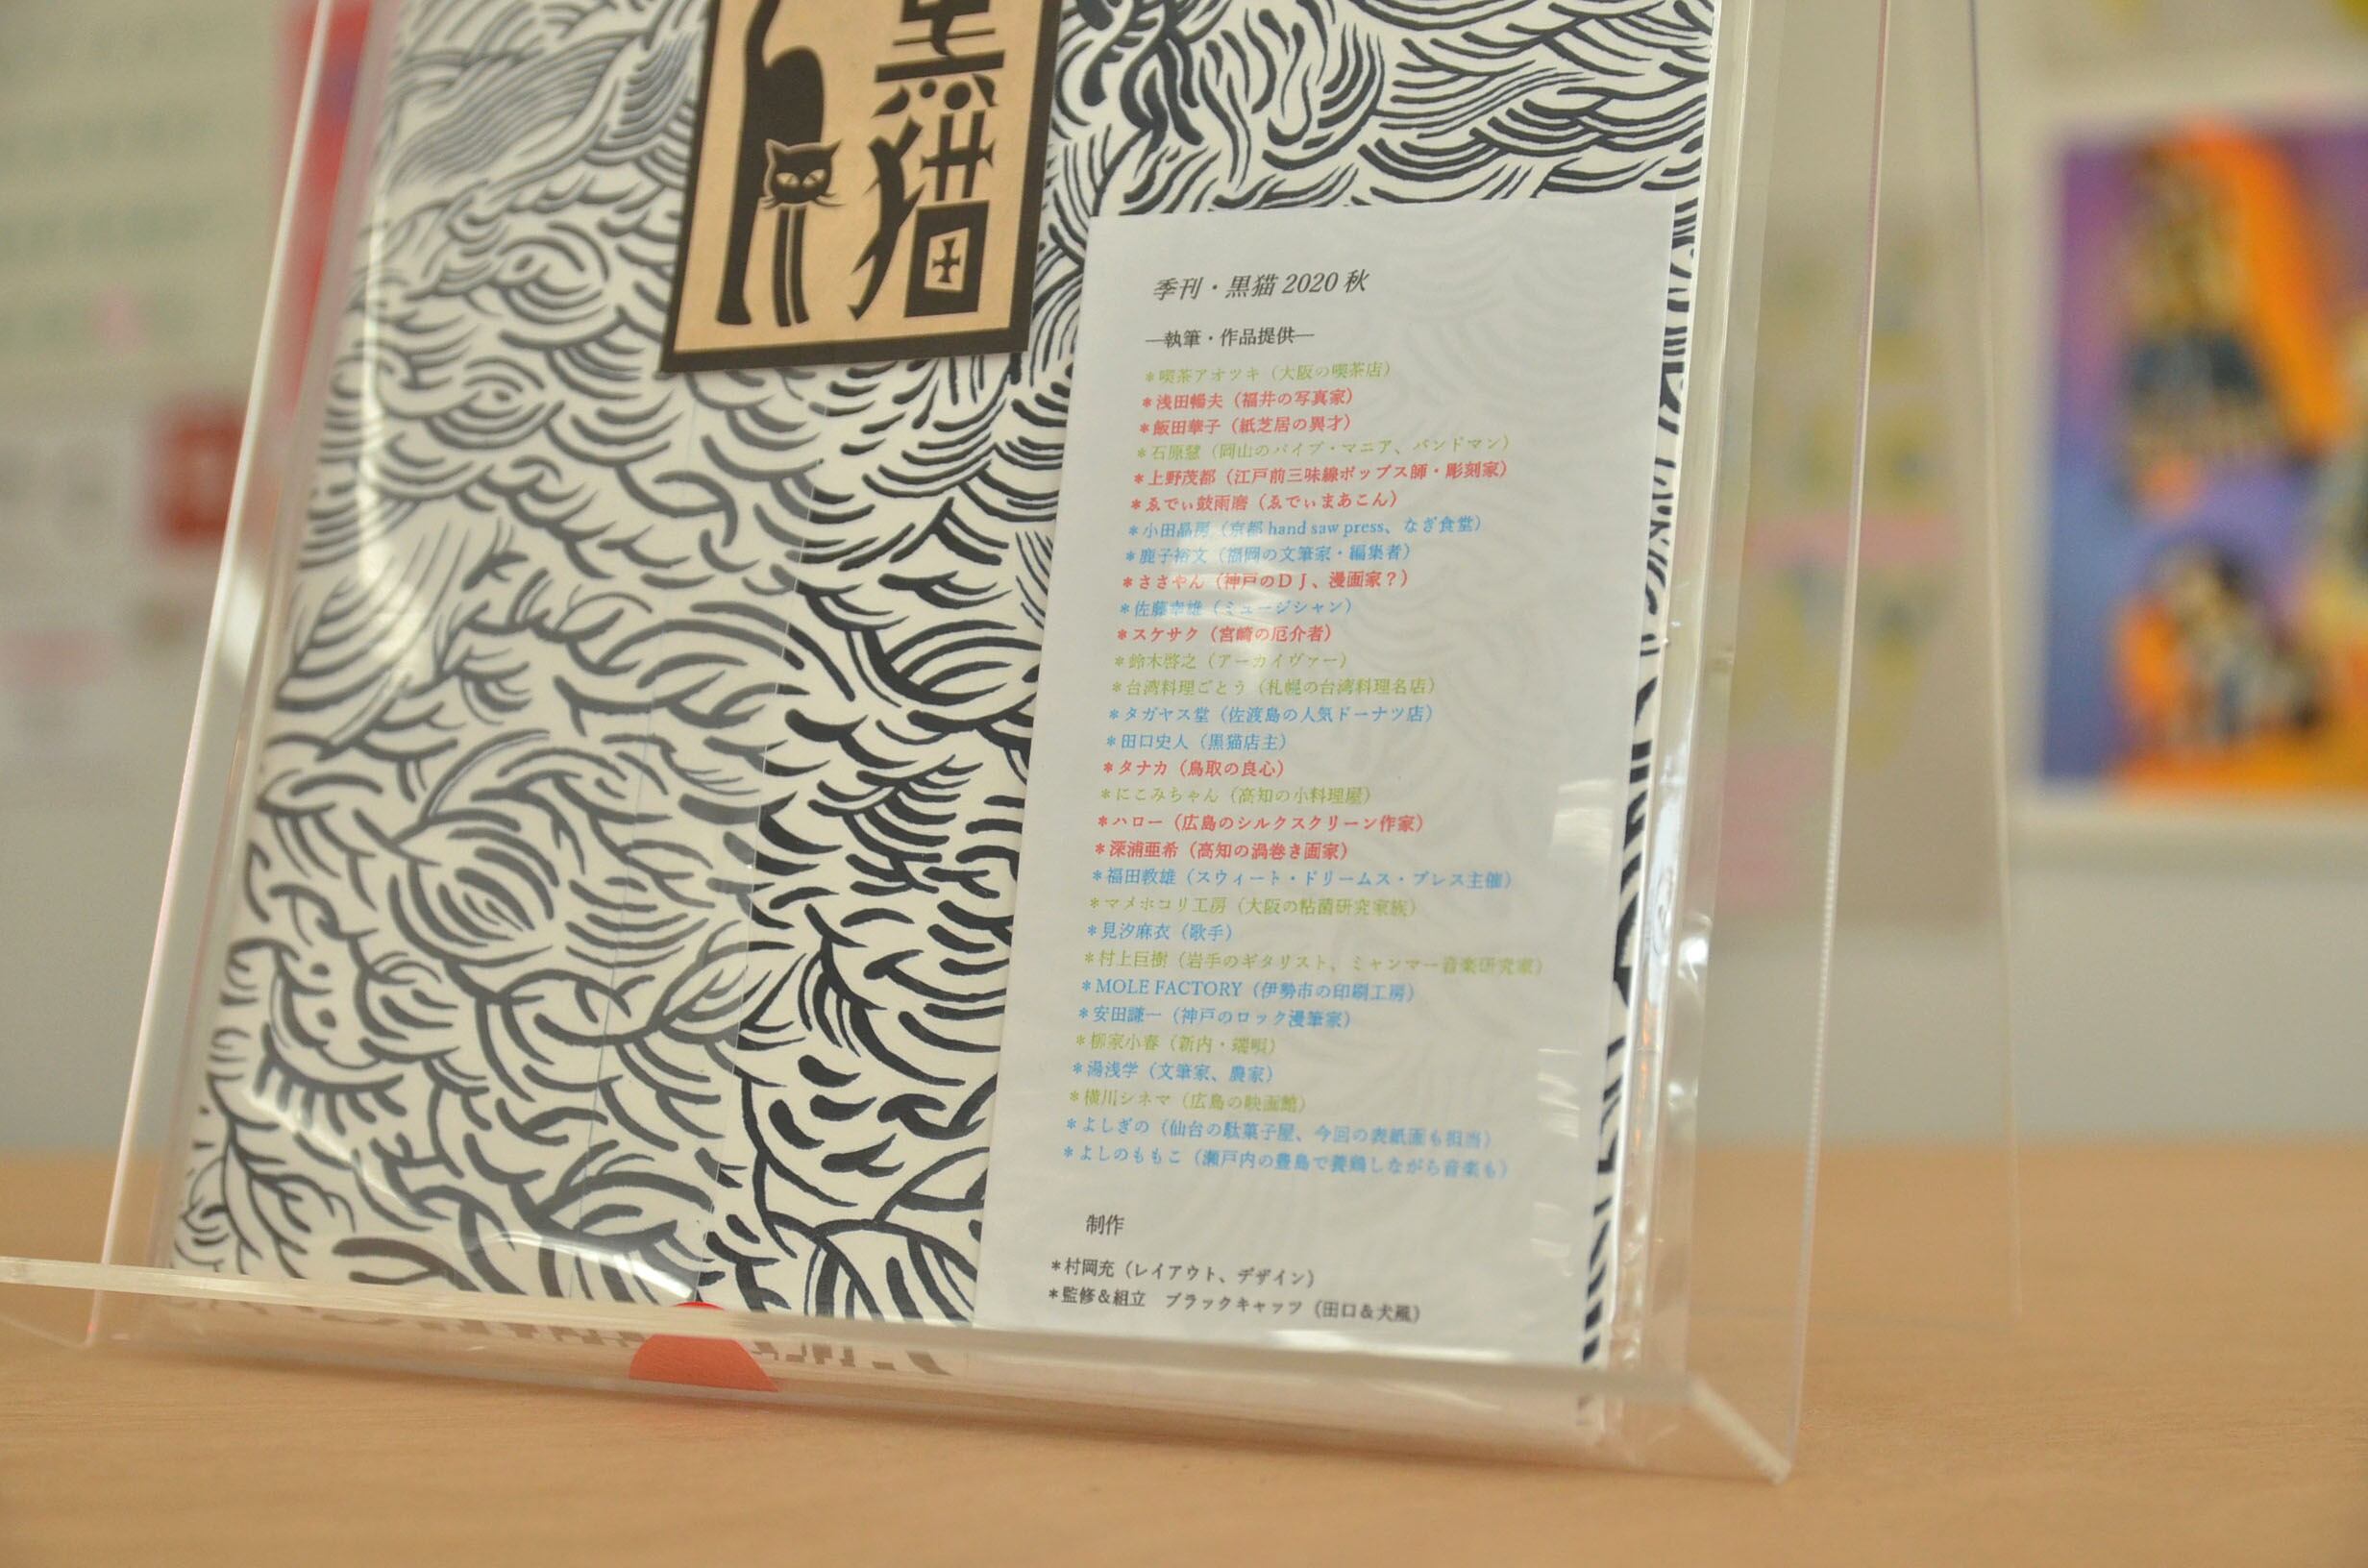 黒猫
季刊・黒猫 2020 秋
―執筆・作品提供―
＊喫茶アオツキ（大阪の喫茶店）
＊浅田暢夫（福井の写真家）
＊飯田華子（紙芝居の異才）
＊石原慧（岡山のパイプ・マニア、バンドマン）
＊上野茂都（江戸前三味線ポップス師・彫刻家）
＊ゑでぃ鼓雨磨（ゑでぃまあこん）
＊小田晶房（京都 hand saw press、なぎ食堂）
＊鹿子裕文（福岡の文筆家・編集者）
＊ささやん（神戸のＤＪ、漫画家？）
＊佐藤幸雄（ミュージシャン）
＊スケサク（宮崎の厄介者）
＊鈴木啓之（アーカイヴァー）
＊台湾料理ごとう（札幌の台湾料理名店）
＊タガヤス堂（佐渡島の人気ドーナツ店）
＊田口史人（黒猫店主）
＊タナカ（鳥取の良心）
＊にこみちゃん（高知の小料理屋）
＊ハロー（広島のシルクスクリーン作家）
＊深浦亜希（高知の渦巻き画家）
＊福田教雄（スウィート・ドリームス・プレス主催）
＊マメホコリ工房（大阪の粘菌研究家族）
＊見汐麻衣（歌手）
＊村上巨樹（岩手のギタリスト、ミャンマー音楽研究家）
＊MOLE FACTORY（伊勢市の印刷工房）
＊安田謙一（神戸のロック漫筆家）
＊柳家小春（新内・端唄）
＊湯浅学（文筆家、農家）
＊横川シネマ（広島の映画館）
＊よしぎの（仙台の駄菓子屋、今回の表紙画も担当）
＊よしのももこ（瀬戸内の豊島で養鶏しながら音楽も）
制作
＊村岡充（レイアウト、デザイン）
＊監修＆組立　ブラックキャッツ（田口＆犬風）